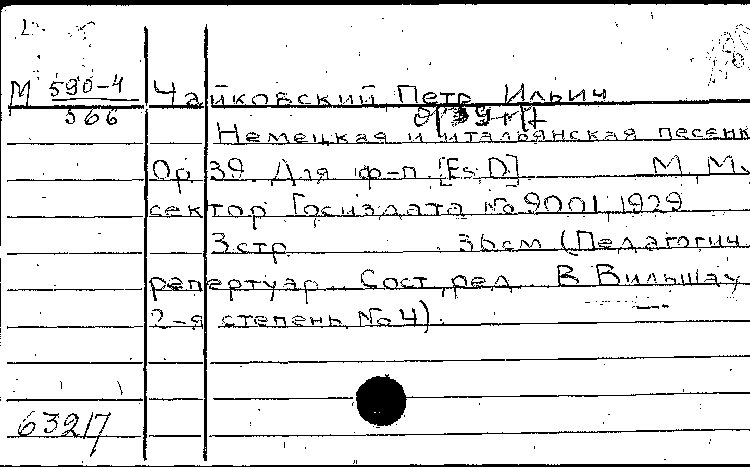 М 590-4
566
Чайковский Петр Ильич
Немецкая и итальянская песенк
Op 39. Для ф-п. [Es, D] М., М.,
сектор Госиздата № 9001, 1929
3 стр 36см (Педагогич
репертуар. Сост., ред. В Вильшау
2-я степень, № 4).
63217